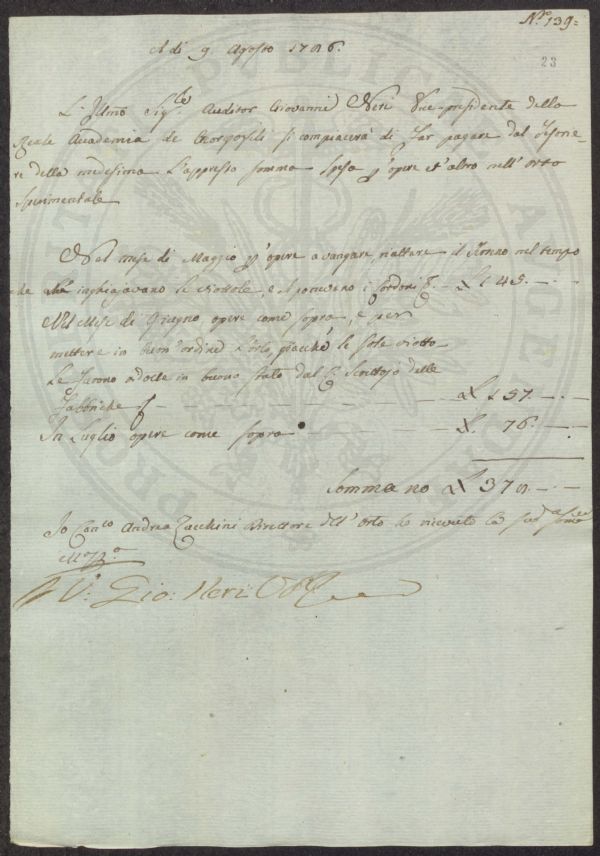 N.ro 139=
23
A di 9 Agosto 1786.
L'Illmo Sig.re Auditor Giovanni Neri Vice-presidente della
Reale Accademia de Georgofili si compiacerà di far pagare dal Tesorie-
re della medesima l'appresso somma spesa p opere et altro nell'Orto
Sperimentale
Nel mese di Maggio p opere a vangare, riattare il terreno nel tempo
che inghiajavano le viottole, e si ponevano i Cordoni
Nel Mese di Giugno opere come sopra, e per
mettere in buon ordine l'Orto, giacchè le sole viotto-
le furono ridotte in buono stato dal R. Scrittojo delle
Fabbriche
In Luglio opere come sopra 76.
Sommano 378.
Io Can.co Andrea Zucchini Direttore dell'Orto ho ricevuto la sud.a somma
Mo Pa
V.o Gio: Neri
PROPRIETA PUBBLICA